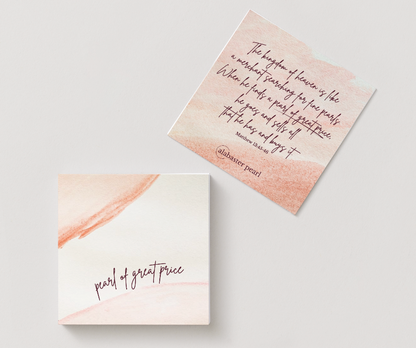 The kingdom of heaven is like
a merchant searching for fine pearls
When he finds a pearl of great price
he goes and sells all
that he has and buys it
Matthew 13:45-46
alabaster pearl
pearl of great price